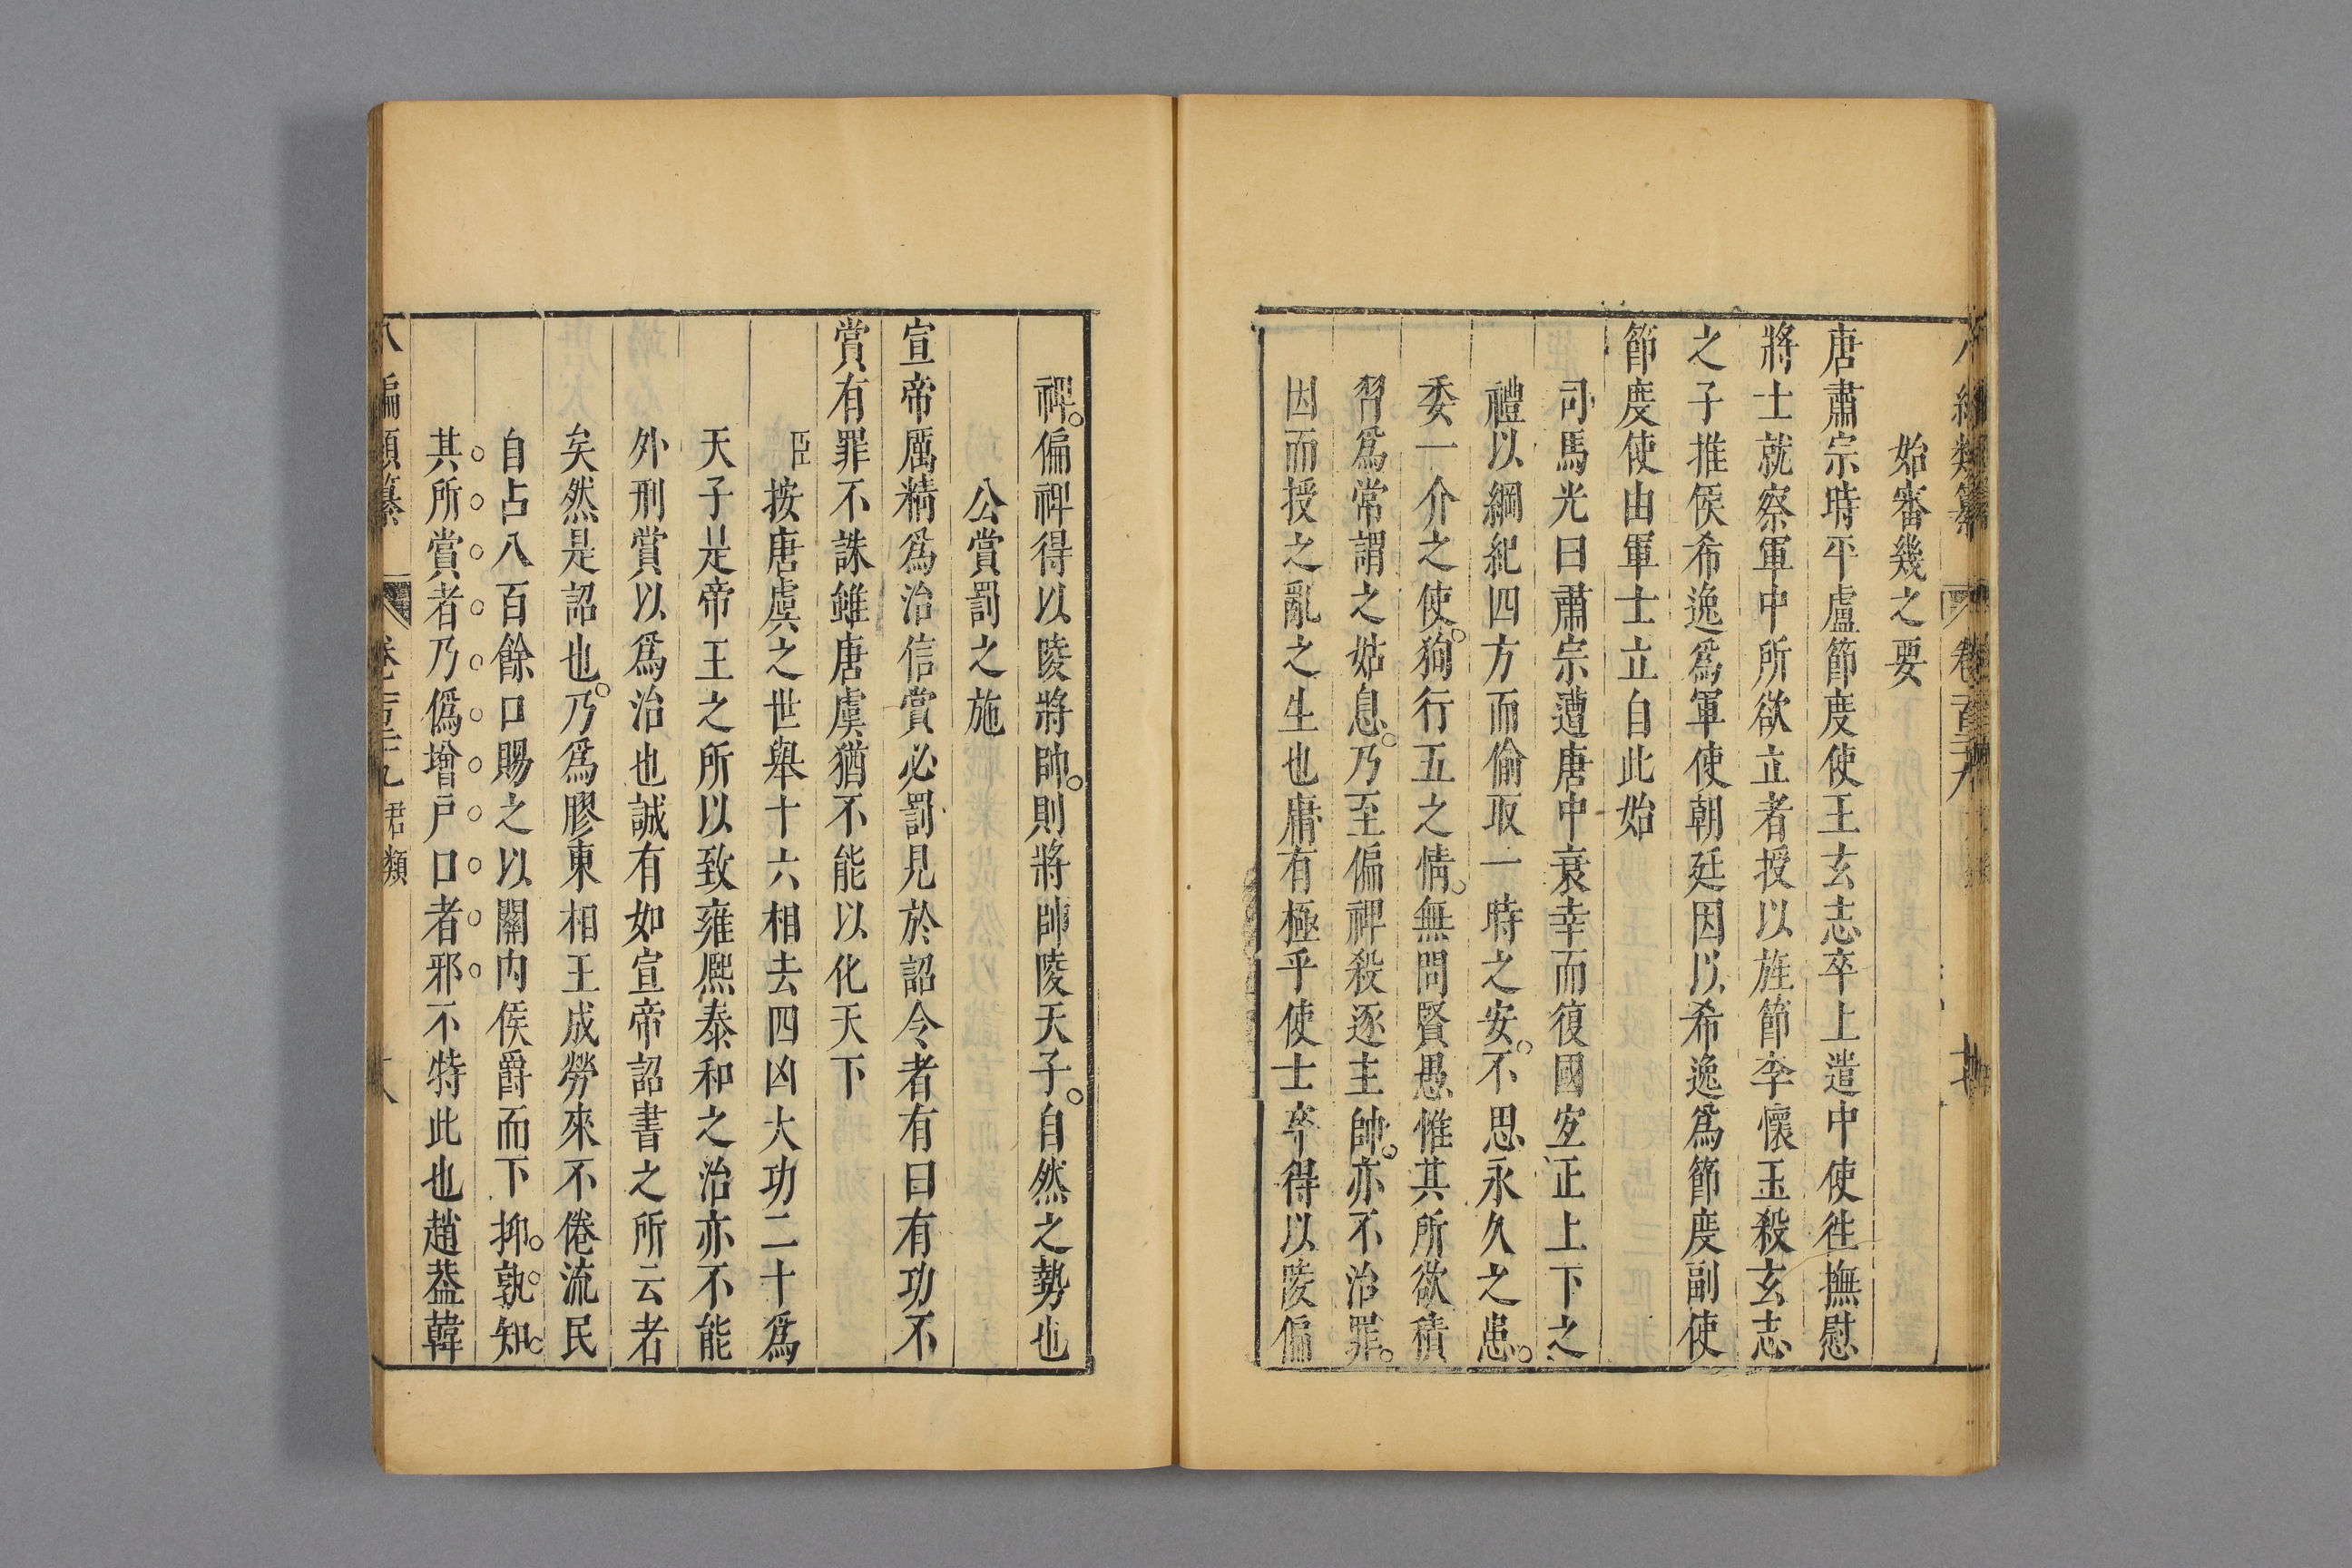 始審幾之要
唐肅宗時平盧節度使王玄志卒上遣中使徃撫慰
將士就察軍中所欲立者授以旌節李懷玉殺玄志
之子推侯希逸爲軍使朝廷因以希逸爲節度副使
節度使由軍士立自此始
司馬光曰肅宗遭唐中衰幸而復國宜正上下之
禮以綱紀四方而偷取一時之安不思永久之患
委一介之使狥行五之情無問賢愚惟其所欲積
習爲常謂之姑息乃至偏裨殺逐主帥亦不治罪
因而授之亂之生也庸有極乎使士卒得以陵偏
裨偏裨得以陵將帥則將帥陵天子自然之勢也
公賞罰之施
宣帝厲精爲治信賞必罰見於詔令者有曰有功不
賞有罪不誅雖唐虞猶不能以化天下
臣按唐虞之世舉十六相去四凶大功二十爲
天子是帝王之所以致雍熈泰和之治亦不能
外刑賞以爲治也誠有如宣帝詔書之所云者
矣然是詔也乃爲膠東相王成勞來不倦流民
自占八百餘口賜之以關内侯爵而下抑孰知
其所賞者乃僞增戸口者邪不特此也趙葢韓
八編類纂 卷百三十九 君類 十八